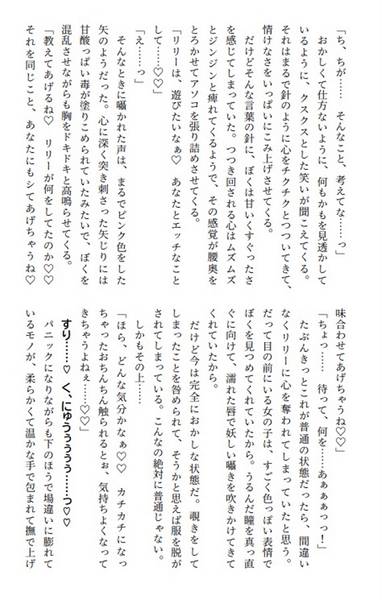 「ち、ちが……　そんなこと、考えてな……っ」
　おかしくて仕方ないように、何もかもを見透かして
いるように、クスクスとした笑いが聞こえてくる。
　それはまるで針のように心をチクチクとつついてきて、
情けなさをいっぱいにこみ上げさせてくる。
　だけどそんな言葉の針に、ぼくは甘いくすぐったさ
を感じてしまっていた。つつき回される心はムズムズ
とジンジンと痺れてくるようで、その感覚が腰奥を
とろかせてアソコを張り詰めさせてくる。
「リリーは、遊びたいなぁ♡　あなたとエッチなこと
して……♡♡」
「え……っ」
　そんなときに囁かれた声は、まるでピンク色をした
矢のようだった。心に深く突き刺さった矢じりには
甘酸っぱい毒が塗りこめられていたみたいで、ぼくを
混乱させながらも胸をドキドキと高鳴らせてくる。
「教えてあげるね♡　リリーが何をしてたのか♡♡
それを同じこと、あなたにもシてあげちゃうね♡
味合わせてあげちゃうね♡♡」
「ちょっ……　待って、何を……あぁぁぁっ！」
　たぶんきっとこれが普通の状態だったら、間違い
なくリリーに心を奪われてしまっていたと思う。
　だって目の前にいる女の子は、すごく色っぽい表情で
ぼくを見つめてくれていたから。うるんだ瞳を真っ直
ぐに向けて、濡れた唇で妖しい囁きを吹きかけてきて
くれていたから。
　だけど今は完全におかしな状態だ。覗きをして
しまったことを咎められて、そうかと思えば服を脱が
されてしまっている。こんなの絶対に普通じゃない。
　しかもその上……
「ほら、どんな気分かなぁ♡♡　カチカチになっ
ちゃったおちんちん触られるとぉ、気持ちよくなって
きちゃうよねぇ……♡♡」
すり……♡　く、にゅうぅぅぅぅ……っ♡♡
　パニックになりながらも下のほうで場違いに膨れて
いるモノが、柔らかくて温かな手で包まれて撫で上げ